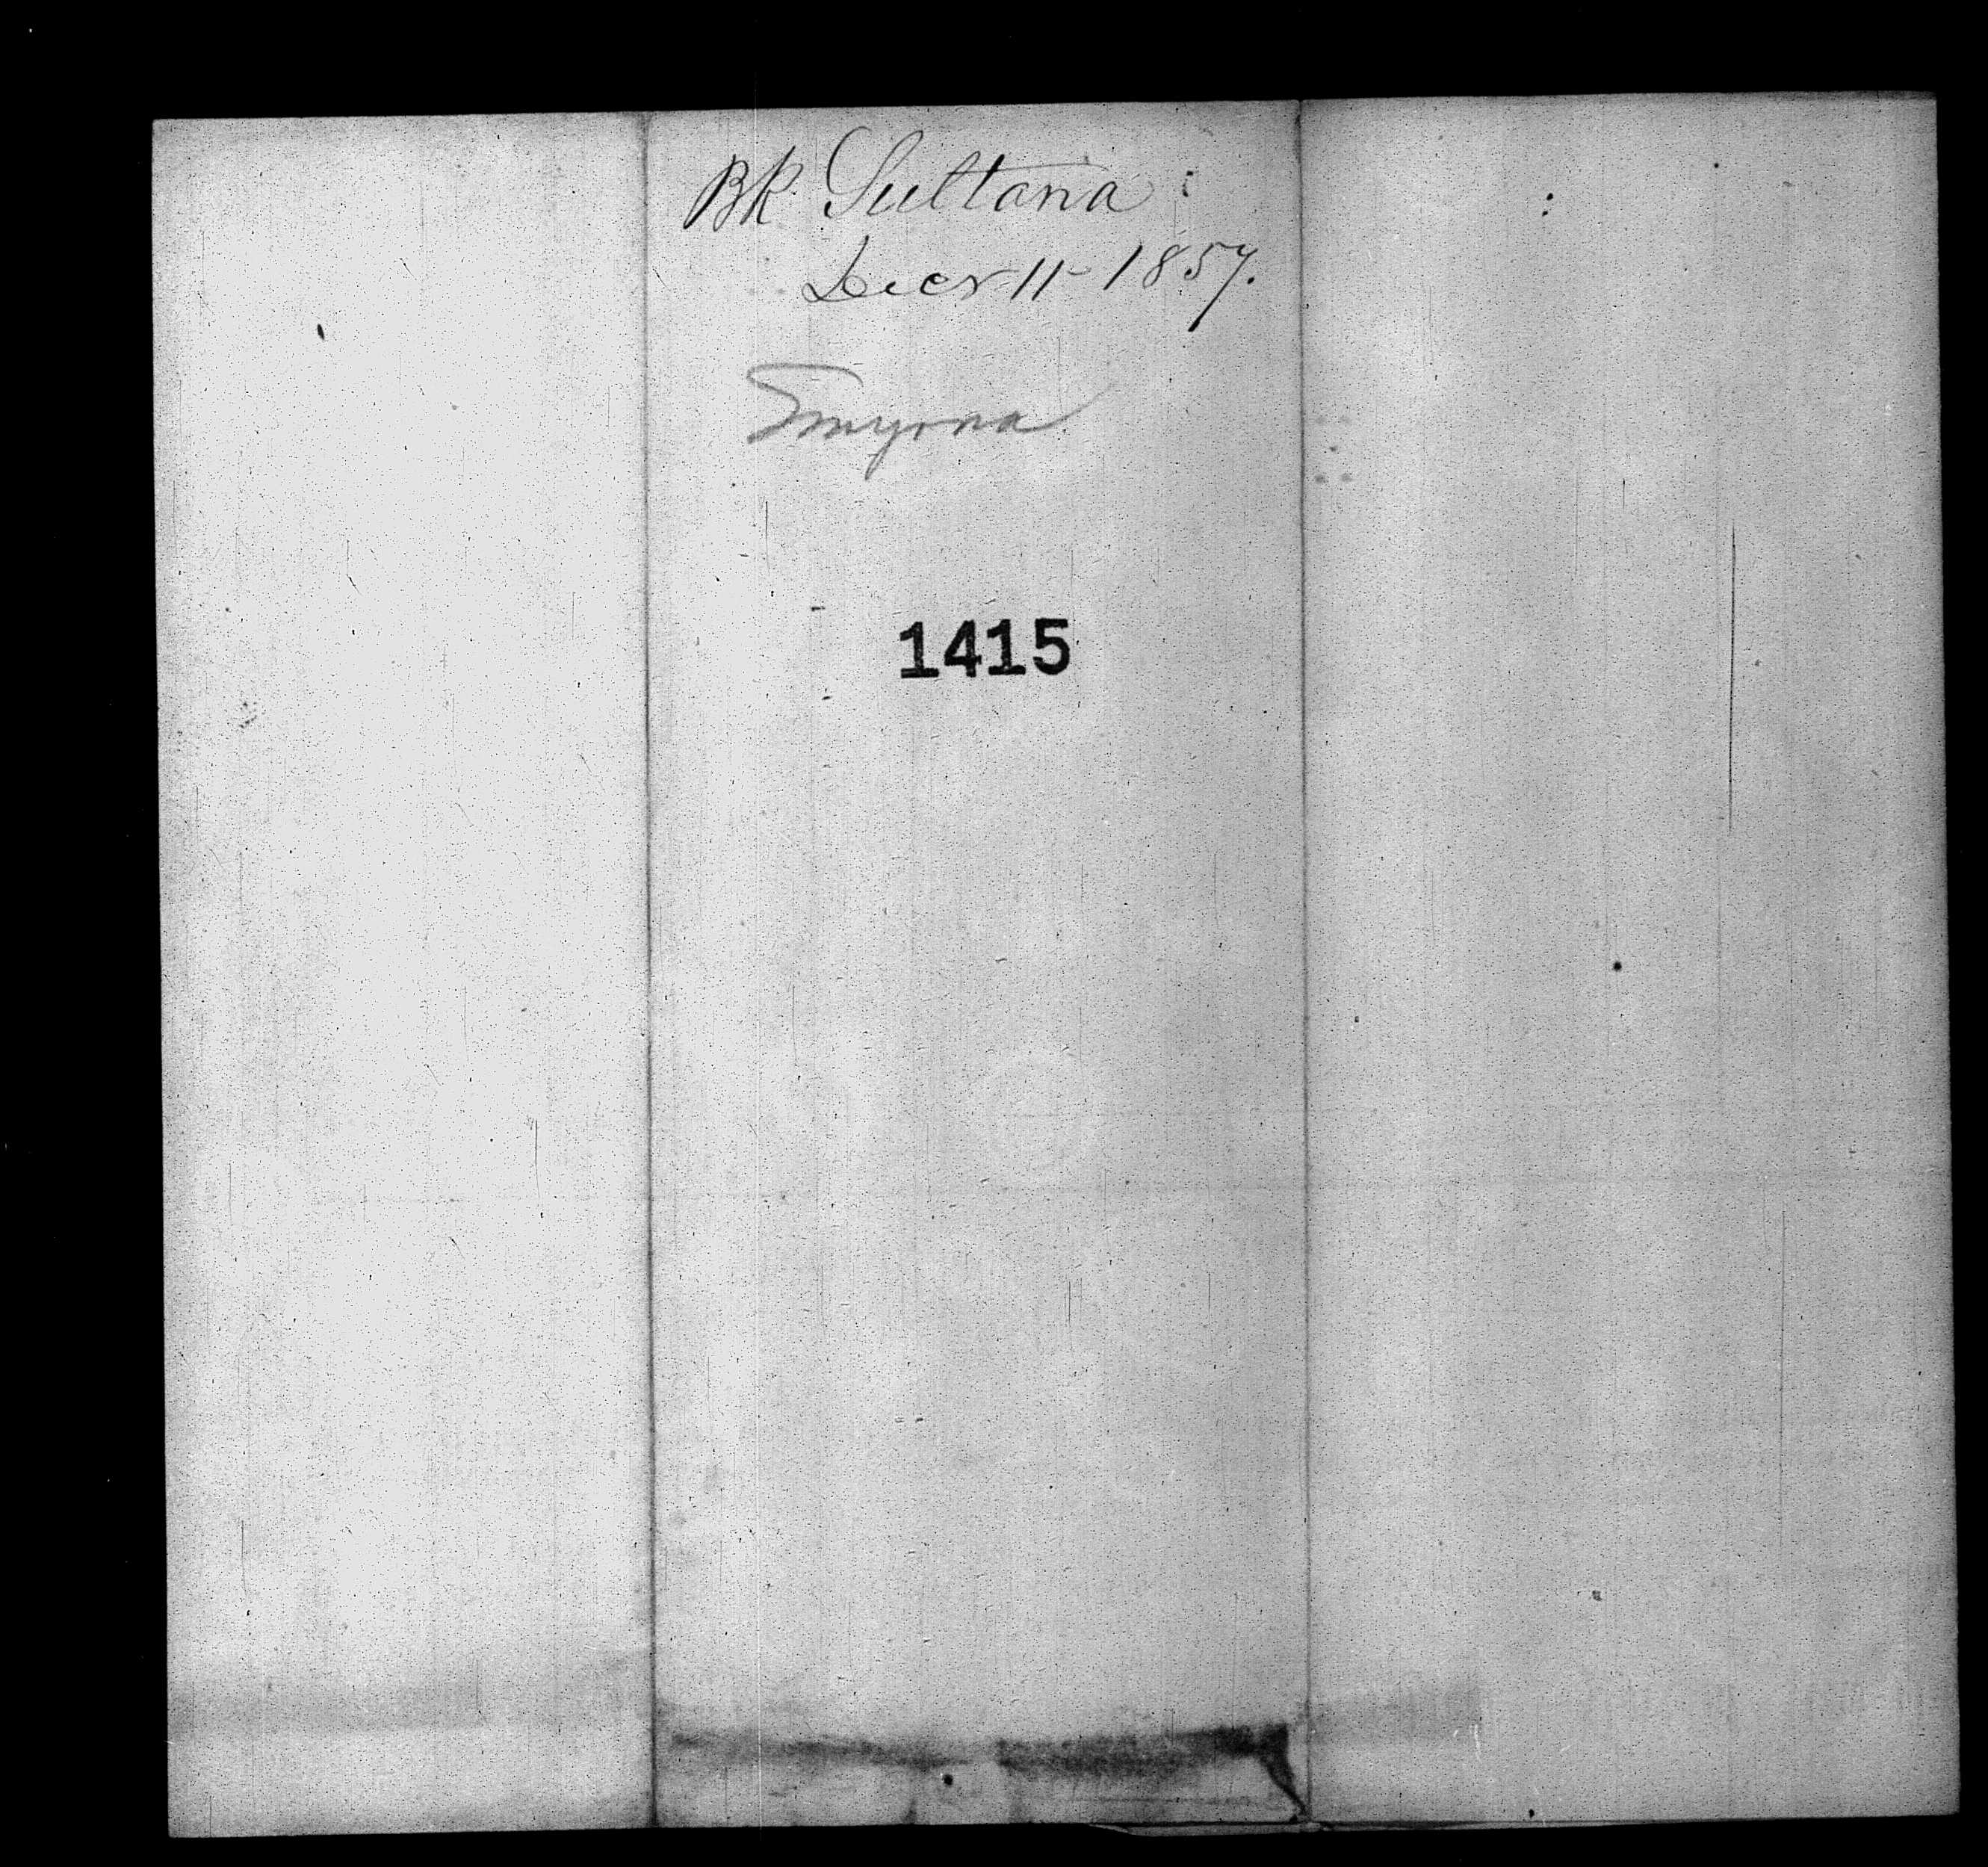 Bk Sultana
Decr 11 - 1857.
Smyrna
1415